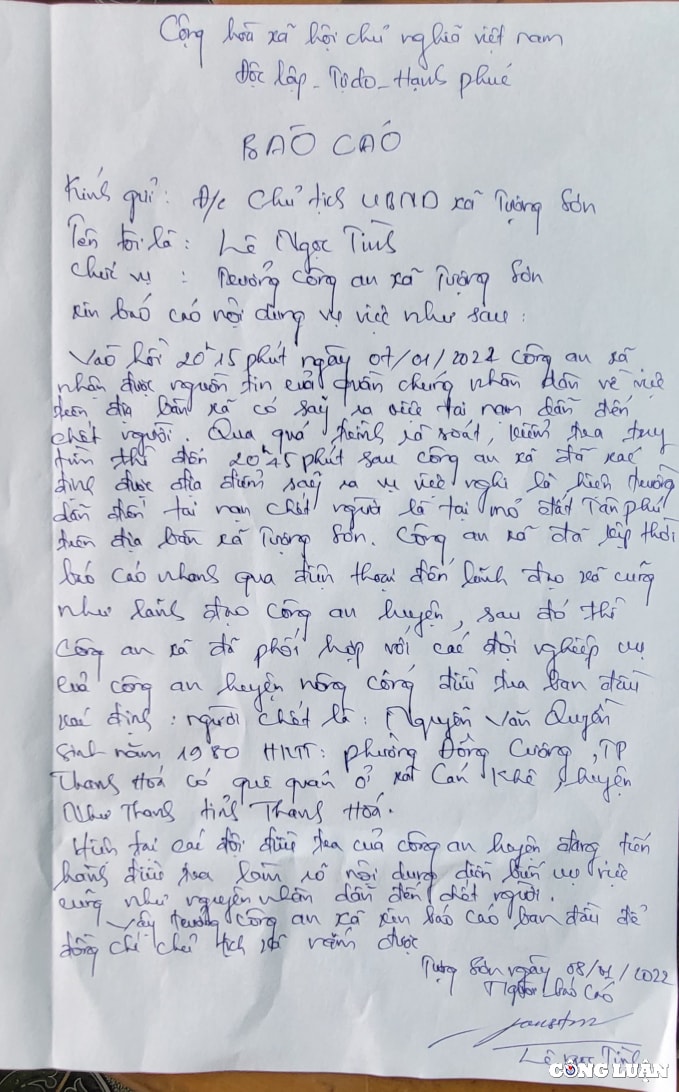 Cộng hoà xã hội chủ nghiã việt nam
Độc lập - Tự do - Hạnh phúc
BÁO CÁO
Kính gửi: Đ/c Chủ tịch UBND xã Tượng Sơn
Tên tôi là: Lê Ngọc Tình
Chức vụ : Trưởng Công an xã Tượng Sơn
xin báo cáo nội dung vụ việc như sau:
Vào hồi 20h15 phút ngày 07/01/2022 Công an xã
nhận được nguồn tin của quần chúng nhân dân về việc
trên địa bàn xã có sảy ra việc tai nạn dẫn đến
chết người. Qua quá trình rò soát, kiểm tra truy
tìm thì đến 20h45 phút sau công an xã đã xác
định được địa điểm sảy ra vụ việc nghi là hiện trường
dẫn đến tai nạn chết người là tại mỏ đất Tân phú
trên địa bàn xã Tượng Sơn. Công an xã đã kịp thời
báo cáo nhanh qua điện thoại đến lãnh đạo xã cũng
như lãnh đạo công an huyện, sau đó thì
Công an xã đã phối hợp với các đội nghiệp vụ
của công an huyện nông cống điều tra ban đầu
xác định: người chết là: Nguyễn Văn Quyền
Sinh năm 1980 HKTT: phường Đông Cương, TP
Thanh Hoá có quê quán ở xã Cán Khê, huyện
Như Thanh tỉnh Thanh Hoá.
Hiện tại các đội điều tra của công an huyện đang tiến
hành điều tra làm rõ nội dung diễn biến vụ việc
cũng như nguyên nhân dẫn đến chết người.
Vậy trưởng công an xã xin báo cáo ban đầu để
đồng chí chủ tịch xã nắm được
Tượng Sơn ngày 08/01/2022
Người báo cáo
Lê Ngọc Tình
CÔNG LUẬN